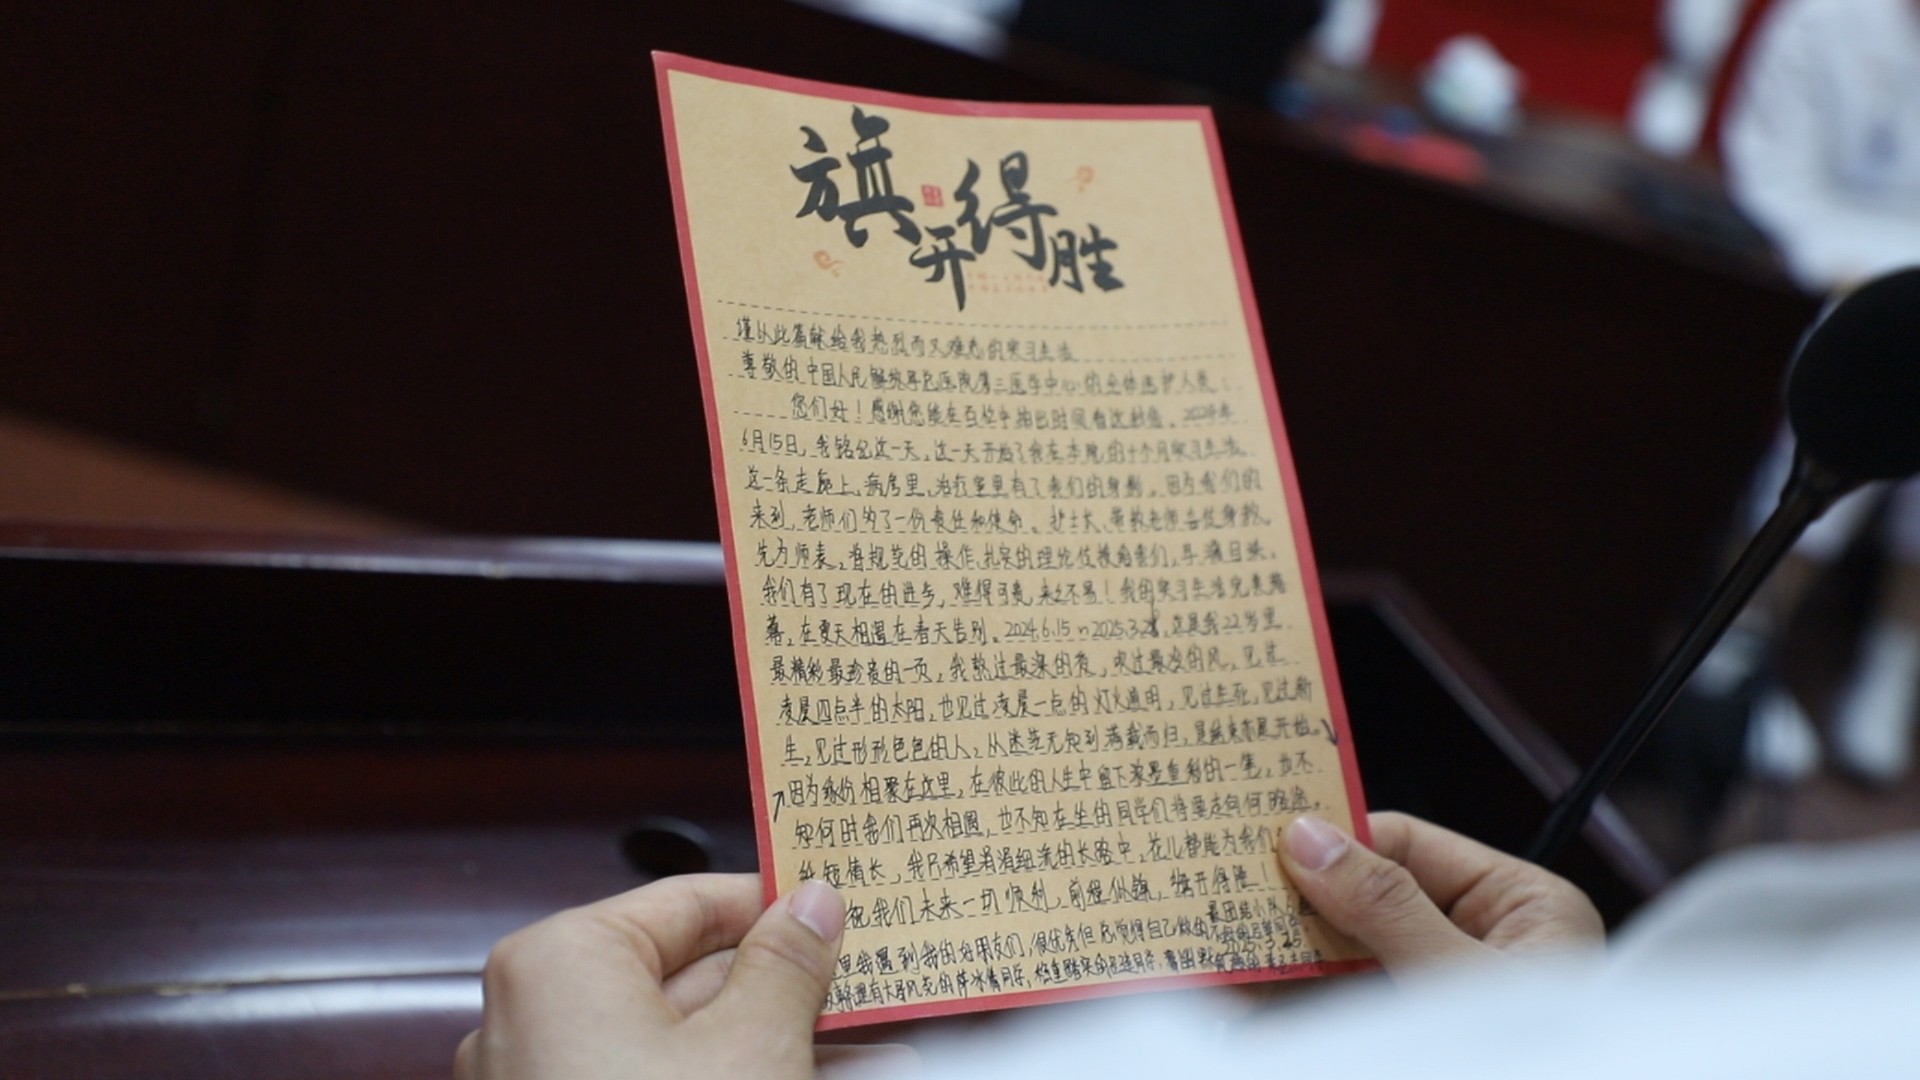 旗开得胜
谨以此篇献给我热烈而又难忘的实习生活
尊敬的中国人民解放军总医院第三医学中心的全体医护人员！
您们好！感谢您能在百忙中抽出时间看这封信。2024年
6月15日，我铭记这一天，这一天开始了我在本院的十个月实习生活。
这一条走廊上，病房里，治疗室里有了我们的身影。因为我们的
来到，老师们多了一份责任和使命。护士长、带教老师言传身教，
先为师表。将规范的操作、扎实的理论传授给我们，耳濡目染。
我们有了现在的进步，难得可贵，来之不易！我的实习生活完美落
幕，在夏天相遇在春天告别。2024.6.15 2025.3.28，这是我22岁里
最精彩最珍贵的一页，我熬过最深的夜，吹过最冷的风，见过
凌晨四点半的太阳，也见过凌晨一点的灯火通明，见过生死，见过新
生，见过形形色色的人，从迷茫无知到满载而归，是结束亦是开始。
因为缘份相聚在这里，在彼此的人生中留下浓墨重彩的一笔，也不
知何时我们再次相遇，也不知在坐的同学们将要走向何路途。
纸短情长，我只希望涓涓细流的长路中，花儿都能为我们
祝我们未来一切顺利，前程似锦，旗开得胜！
最团结小队
里我遇到我的好朋友们，很优秀但总觉得自己做的
2025.3.25
有大将风范的薛冰倩同学，稳重踏实的